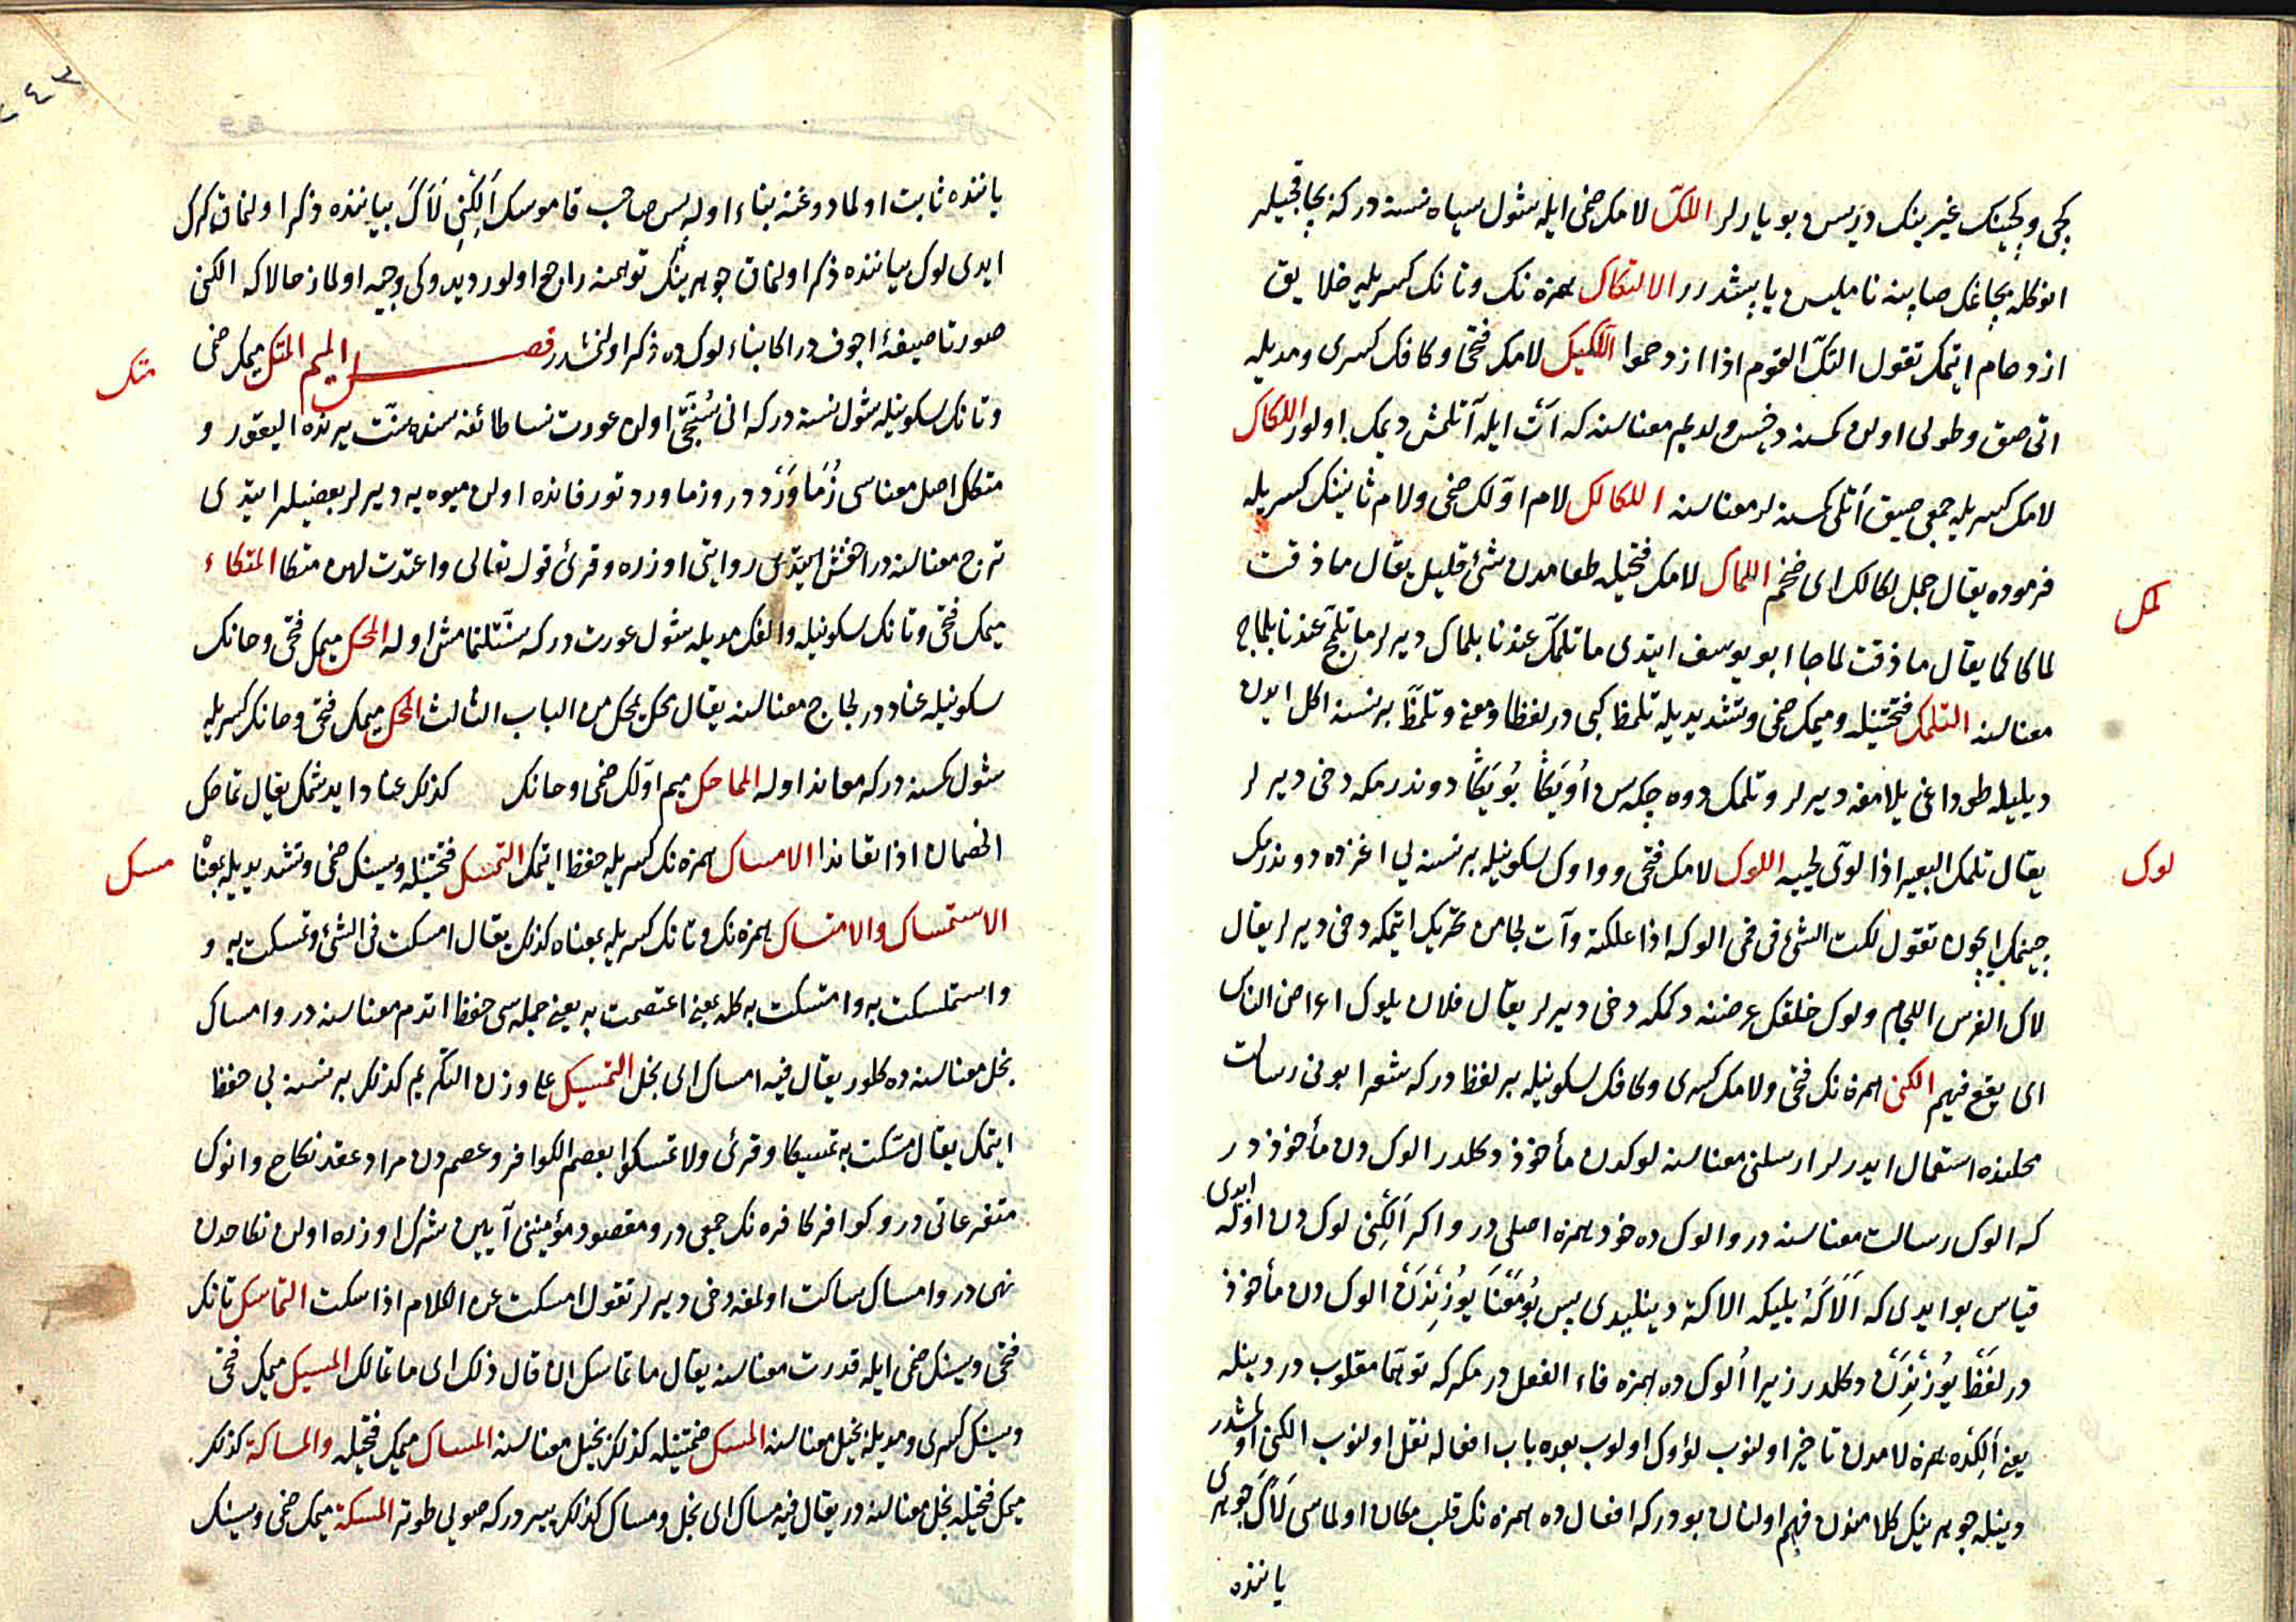 كجى وكجينك غيرينك دريسن بويارلر اللكّ لامك ضمى ايله شول سياه نسنه دركه بچاقجيلر
انوكله بچاغك صاپينه ناميلس ياپشدرر الالتكاك همزه نك وتانك كسريله خلايق
ازدحام ايتمك تقول التكّ القوم اذا ازدحموا اللكيك لامك فتحى وكافك كسرى ومديله
اتى صق وطولى اولن كمسنه دخس ولديم معناسنه كه آت ايله آتلمش ديمك اولور اللكاك
لامك كسريله جمعى صيق أتلى كمسنه لر معناسنه اللكالك لام اوّلك ضمى ولام ثانينك كسريله
فرموده يقال جمل لكالك اى ضخم اللماك لامك فتحيله طعامدن شئ قليل يقال ما ذقت
لمك
لماكا كما يقال ما ذقت لماجا ابو يوسف ايتدى ما تلمّك عندنا بلماك ديرلر ما تلمّج عندنا بلماج
معناسنه التلمّك فتحتينله وميمك ضمى وتشديديله تلمظ كبى در لفظا ومعنى وتلمّظ برنسنه اكل ايدن
ديليله طوداغى يلامغه ديرلر وتلمك دوه چكه سن أويكا بويكا دوندرمكه دخى ديرلر
يقال تلمك البعير اذا لوّى لحييه اللوك لامك فتحى وواوك سكونيله برنسنه يى اغزده دوندرمك
لوك
چينمك ايچون تقول لكت الشئ فى فمى الوكه اذا علكته وآت لجامن تحريك ايتمكه دخى ديرلر يقال
لاك الفرس اللجام ولوك خلقك عرضنه دكمكه دخى ديرلر يقال فلان يلوك اعراض الناس
اى يقع فيهم الكنى همزه نك فتحى ولامك كسرى وكافك سكونيله بر لفظ دركه شعرا بونى رسالت
محلنده استعمال ايدرلر ارسلنى معناسنه لوكدن مأخوذ دكلدر الوك دن مأخوذ در
كه الوك رسالت معناسنه در والوك ده خود همزه اصلى در واكر اَلِكْنِى لوك دن اوله ايدى
قياس بو ايدى كه اَلَاكَهُ يليكه الاكة دينليدى پس بومعنا يوزندن الوك دن مأخوذ
در لفظ يوزندن دكلدر زيرا اُلوك ده همزه فاء الفعل در مكركه توهّما مقلوب در دينله
يعنى اَلِكْده همزه لامدن تاخير اولنوب لؤوك اولوب بعده باب افعاله نقل اولنوب الكنى اولمشدر
دينله جوهرينك كلامندن فهم اولنان بودركه افعال ده همزه نك قلب مكان اولماسى لَأكَ جوهرى
ياننده
ياننده ثابت اولمادوغنه بناء اوله پس صاحب قاموسك اَلِكْنِى لَأَكَ بياننده ذكر اولنمق كرك
ايدى لوك بياننده ذكر اولنمق جوهرينك توهمنه راجح اولور ديدوكى وجيه اولماز حالا كه الكنى
صورتا صيغهٔ اجوف در اكا بناء لوك ده ذكر اولنمشدر فصل الميم المتك ميمك ضمى
متك
وتانك سكونيله شول نسنه دركه انى سُنّتجى اولن عورت نسا طائفه سنده سنّت يرنده اليقور و
متكك اصل معناسى زُمَاوَرْد در وزماورد تورفانده اولن ميوه يه ديرلر بعضيلر ايتدى
ترنج معناسنه در اخفش ايتدى روايتى اوزره وقرئ قوله تعالى واعتدت لهن متكا المتكاء
ميمك فتحى وتانك سكونيله والفك مديله شول عورت دركه سنّتلنمامش اوله المحك ميمك فتحى وحانك
سكونيله عناد در لجاج معناسنه يقال محك يمحك من الباب الثالث المحك ميمك فتحى وحانك كسريله
شول كمسنه دركه معاند اوله المماحك ميم اوّلك ضمى وحانك كذلك عناد ايدشمك يقال تماحك
الخصمان اذا تعاندا الامساك همزه نك كسريله حفظ ايتمك التمسك فتحتينله وسينك ضمى وتشديديله بمعنا
مسك
الاستمساك والامتساك همزه نك وتانك كسريله بمعناه كذلك يقال امسكت فى الشئ وتمسكت به و
واستمسكت به وامتسكت به كله بمعنى اعتصمت به يعنى جمله سى حفظ اتدم معناسنه در وامساك
بخل معناسنه ده كلور يقال فيه امساك اى بخل التمسيك على وزن التكريم كذلك برنسنه يى حفظ
ايتمك يقال مسّكت به تمسيكا وقرئ ولا تمسّكوا بعصم الكوافر وعصم دن مراد عقد نكاح وانوك
متفرعاتى در وكوافر كافره نك جمعى در ومقصود مؤمنينى آيين شرك اوزره اولن نكاحدن
نهى در وامساك ساكت اولمغه دخى ديرلر تقول امسكت عن الكلام اذا سكت التماسك تانك
فتحى وسينك ضمى ايله قدرت معناسنه يقال ما تماسك ان قال ذلك اى ما تمالك المسيك ميمك فتحى
وسينك كسرى ومديله بخيل معناسنه المسك ضمتينله كذلك بخيل معناسنه المساك ميمك فتحيله والمساكة كذلك
ميمك فتحيله بخل معناسنه در يقال فيه مساك اى بخل ومساك كذلك يردركه صويى طوتر المسكة ميمك ضمى وسينك